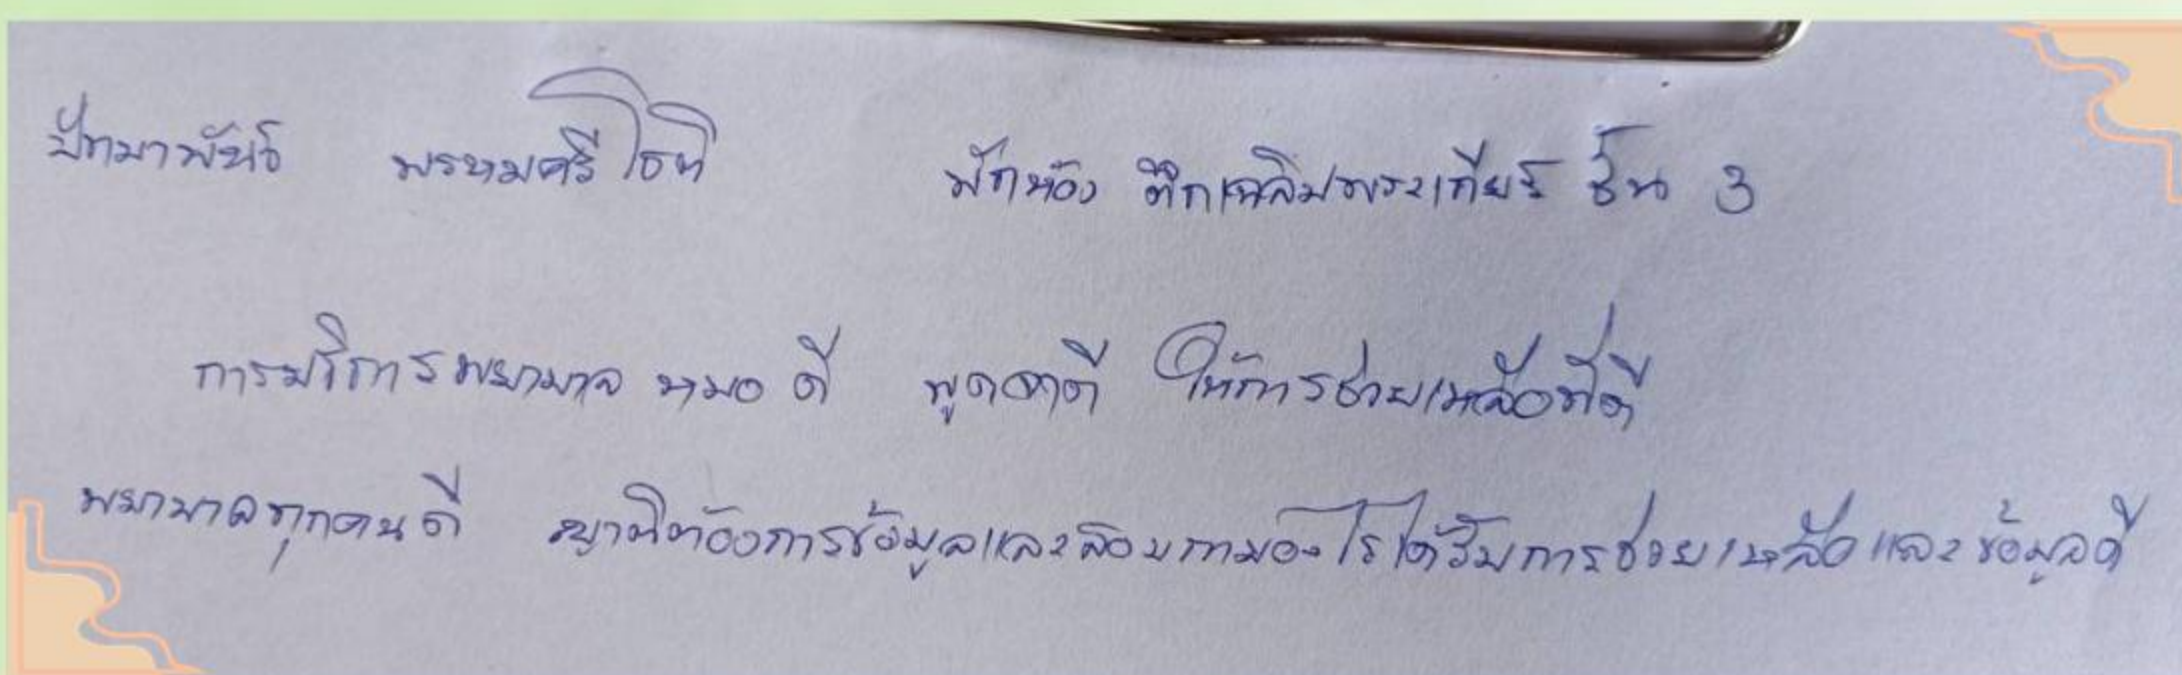 ปัทมาพันธ์ พรหมศรีโชติ พักห้อง ตึกเฉลิมพระเกียร์ ชั้น 3
การบริการพยาบาล หมอ ดี พูดจาดี ให้การช่วยเหลือที่ดี
พยาบาลทุกคนดี ญาติต้องการข้อมูลและสอบถามอะไรได้รับการช่วยเหลือและข้อมูลดี